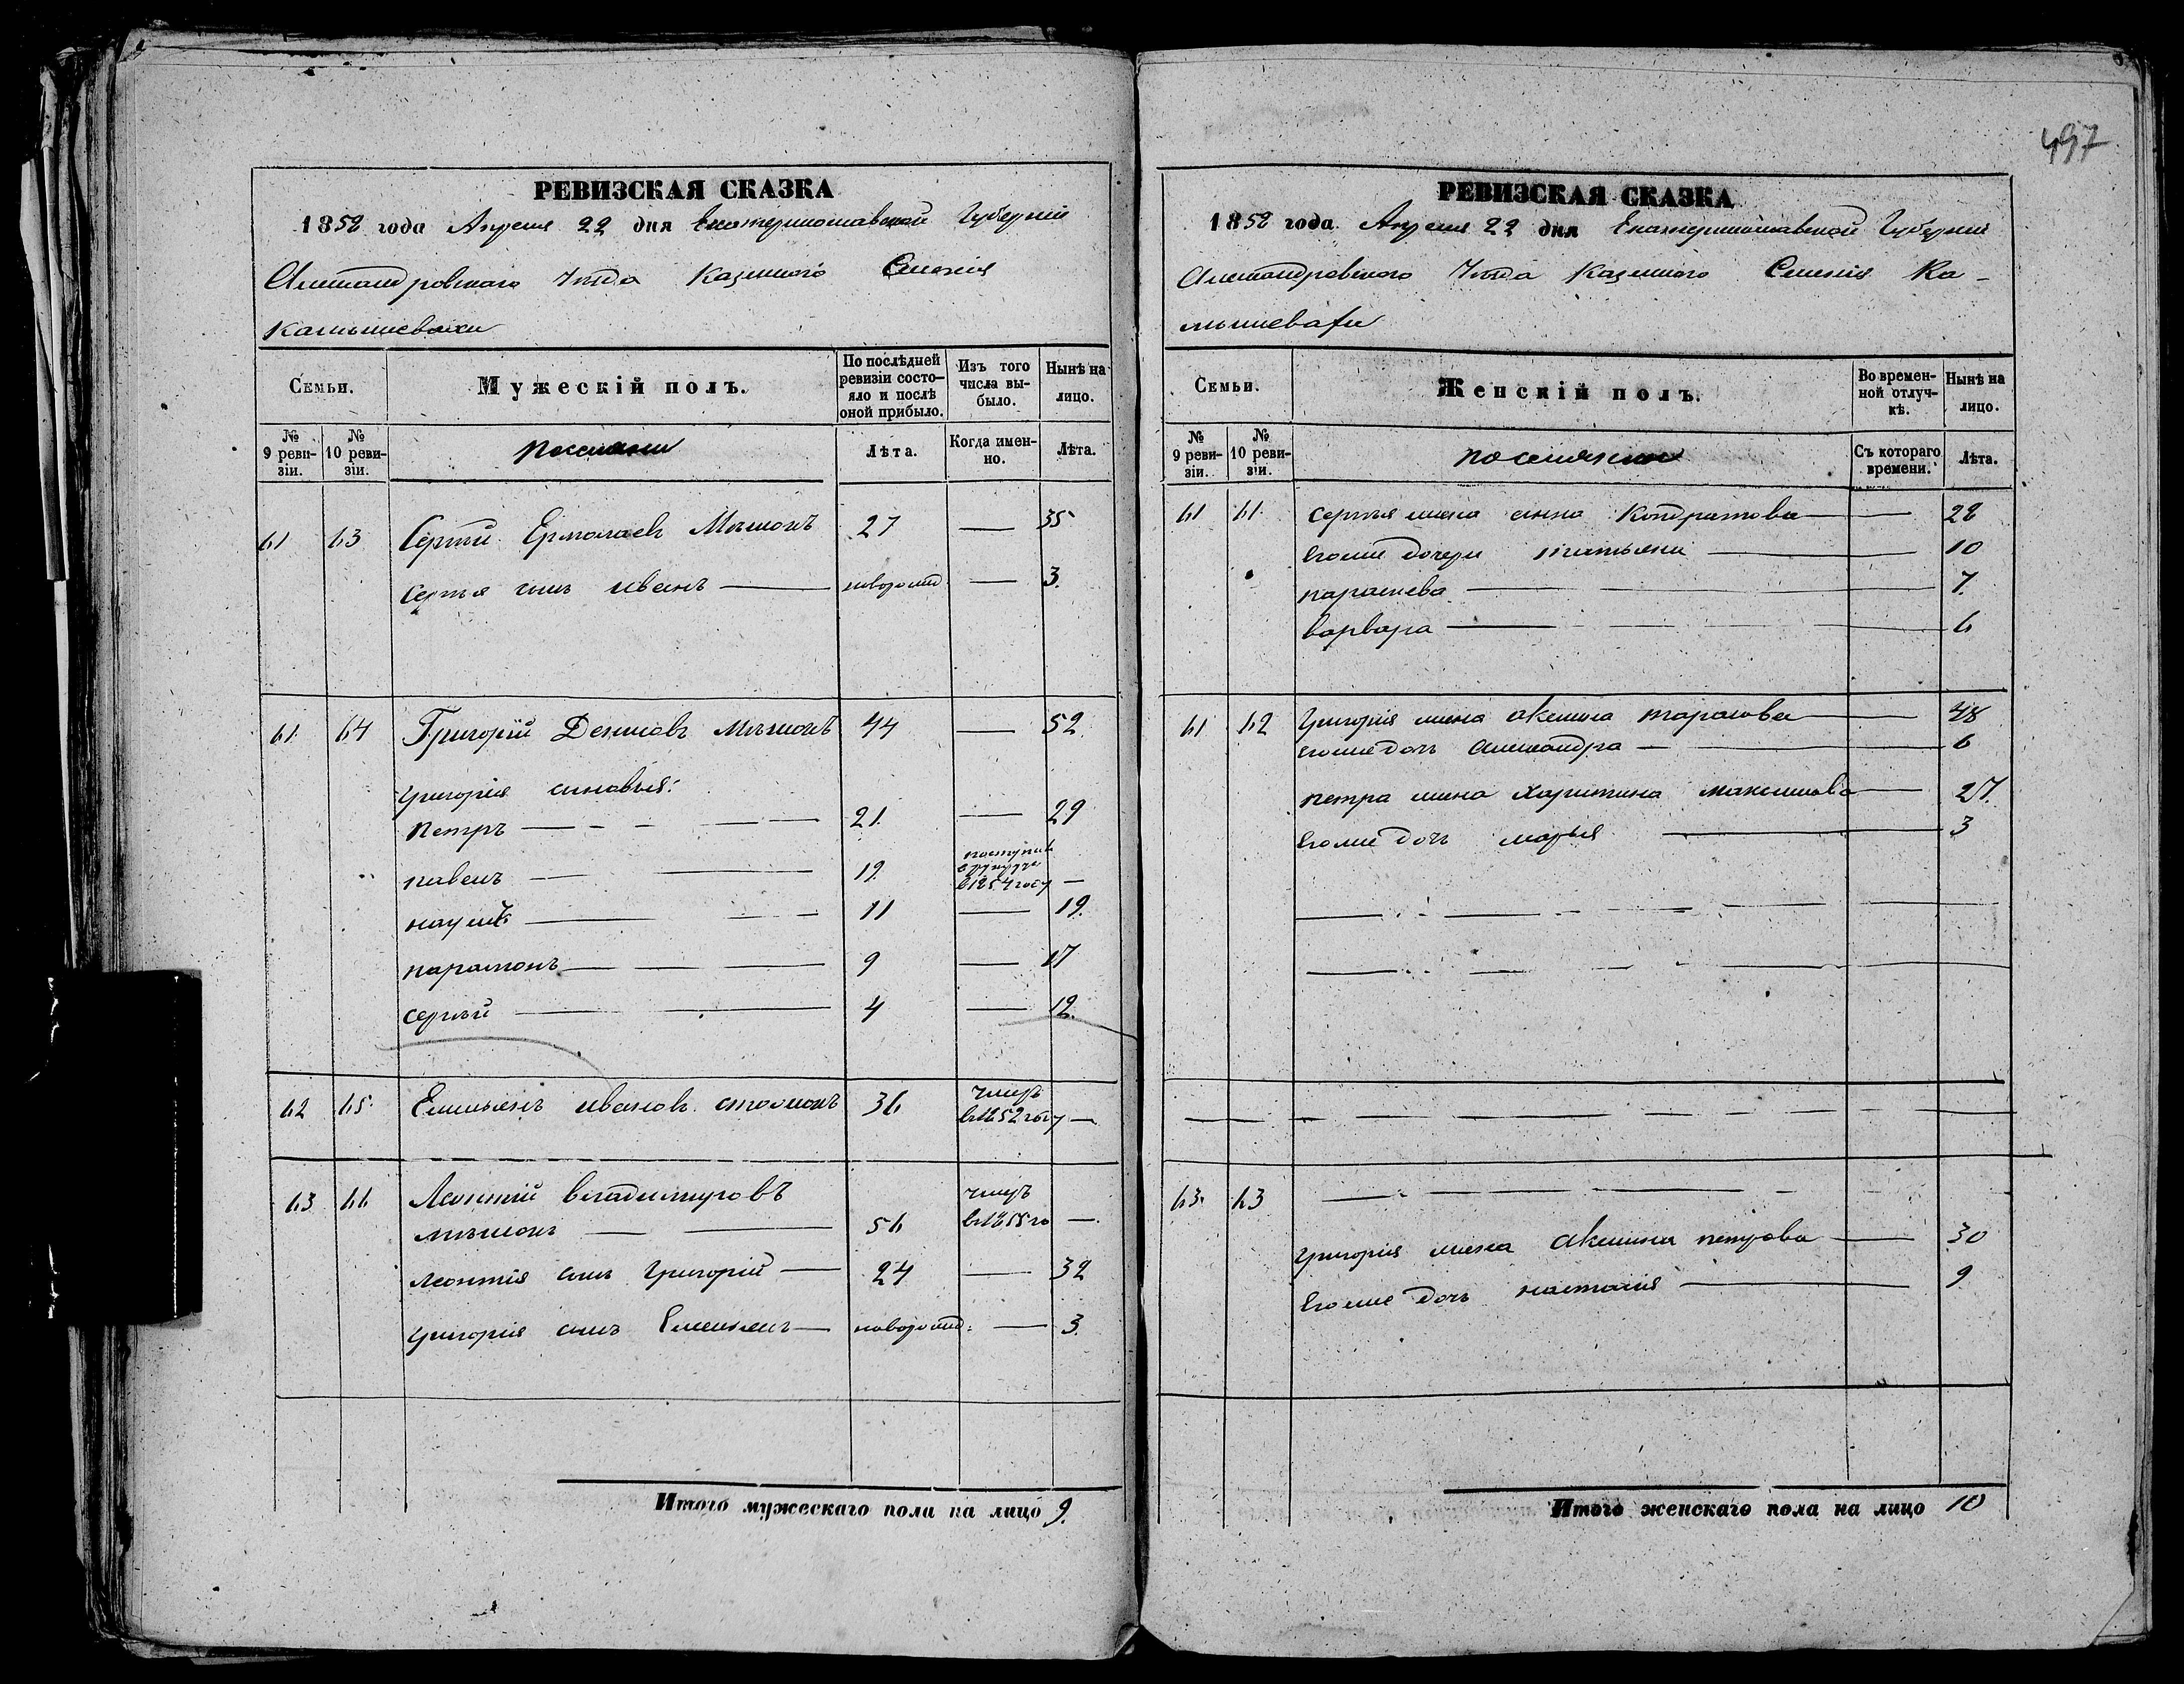 497
РЕВИЗСКАЯ СКАЗКА
1858 года Апреля 22 дня Екатеринославской Губерніи
Александровскаго Уѣзда Казеннаго Селенія
Камышевахи
Семьи.
Мужескій полъ.
По послѣдней ревизіи состояло и послѣ оной прибыло.
Изъ того числа выбыло.
Нынѣ на лицо.
№ 9 ревизіи.
№ 10 ревизіи.
поселяни
Лѣта.
Когда именно.
Лѣта.
61 63 Сергѣй Ермолаевъ 27 — 35
Сергѣя сынъ иванъ — новорожд. — 3.
61. 64 Григорій Денисовъ 44 — 52.
Григорія синовья:
Петръ — 21. — 29
павелъ — 19. поступилъ в рекруты в 1854 году —
наумъ — 11 — 19.
парамонъ — 9 — 17
сергѣй — 4 — 12.
62 65. Емельянъ ивановъ 36 Умеръ в 1852 году —
63 66 Леонтій владимировъ
56 умеръ в 1855 го —
леонтія сынъ Григорій — 24 — 32
григорія сынъ Емельянъ — новорожд. — 3.
Итого мужескаго пола на лицо 9.
РЕВИЗСКАЯ СКАЗКА
1858 года Апреля 22 дня Екатеринославской Губерніи
Александровского Уѣзда Казенного Селенія Ка-
мышевахи
Семьи.
Женскій полъ.
Во временной отлучкѣ.
Нынѣ на лицо.
№ 9 ревизіи.
№ 10 ревизіи.
поселянки
Съ котораго времени.
Лѣта.
61 61. Сергѣя жена анна Кондратова — 28
Егоже дочери татьяна — 10
параскева — 7.
варвара — 6
61 62 Григорія жена аксинья тарасова — 48
егоже дочь александра — 6
петра жена харитина максимова — 27.
Егоже дочь марья — 3
63. 63
Григорія жена Аксинья петрова — 30
Егоже дочь настасія — 9
Итого женскаго пола на лицо 10